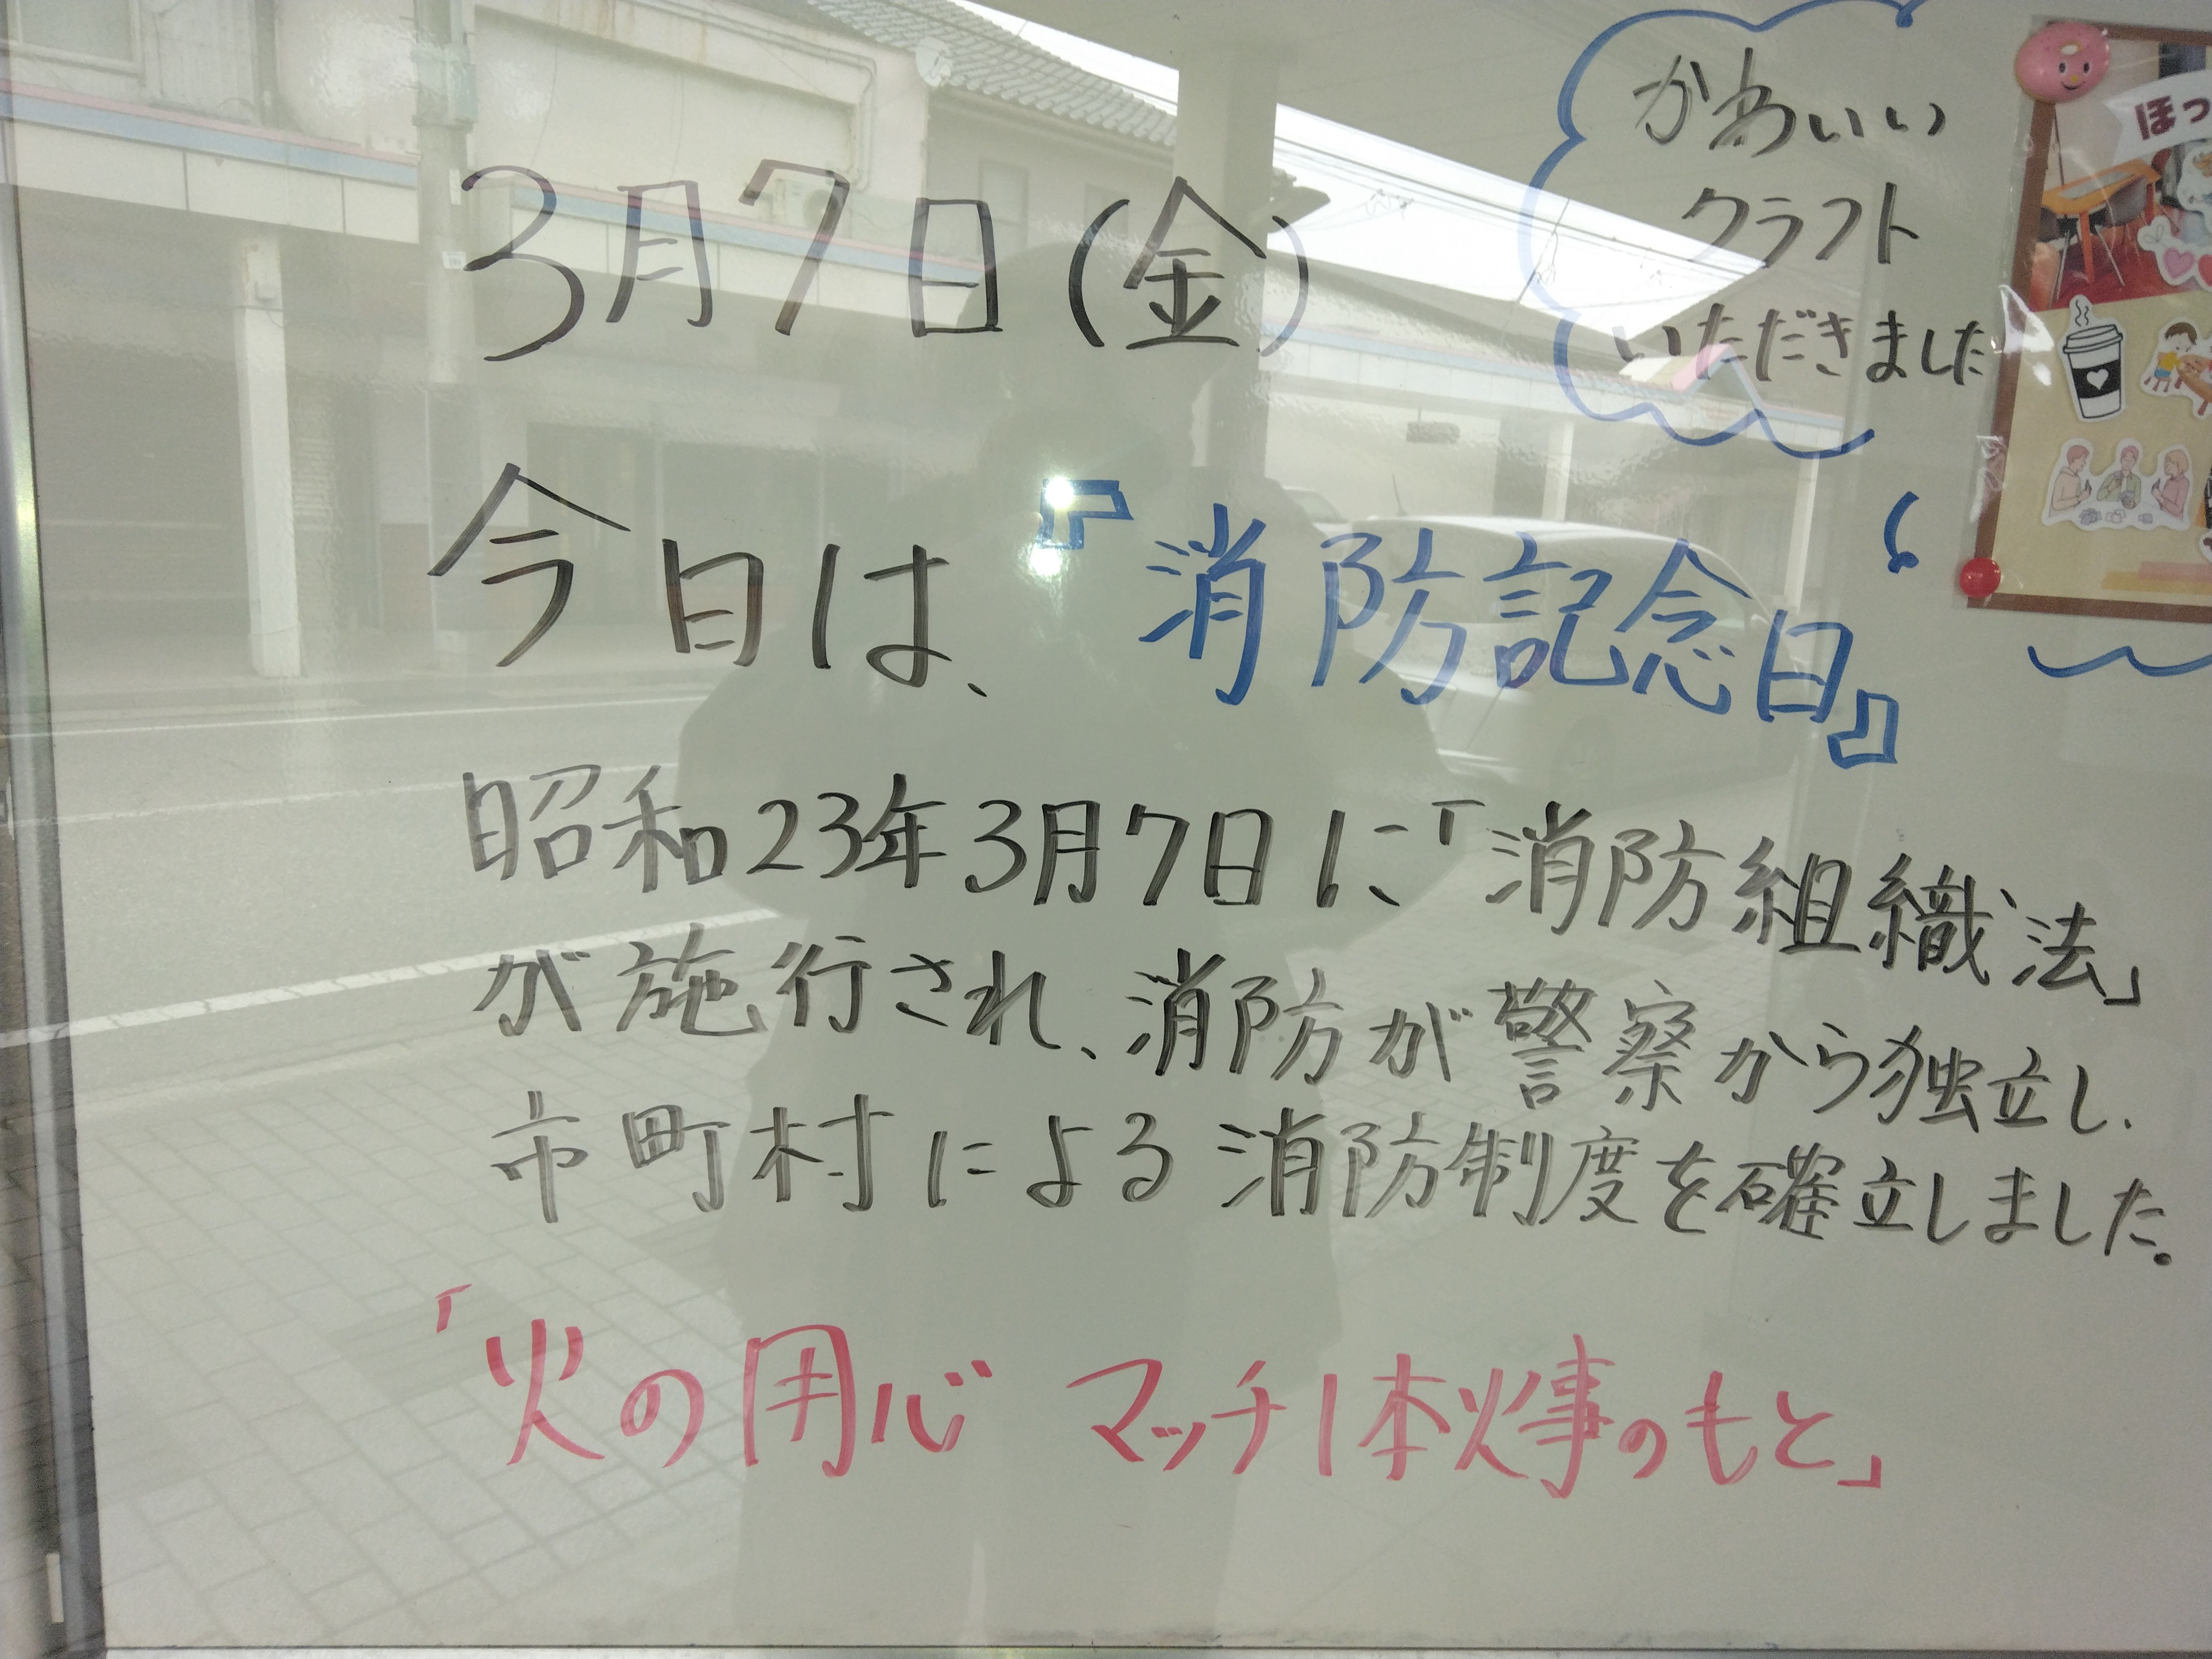 3月7日(金)
今日は、『消防記念日』
昭和23年3月7日に「消防組織法」
が施行され、消防が警察から独立し、
市町村による消防制度を確立しました。
「火の用心 マッチ1本火事のもと」
かわいい
クラフト
いただきました
ほっ